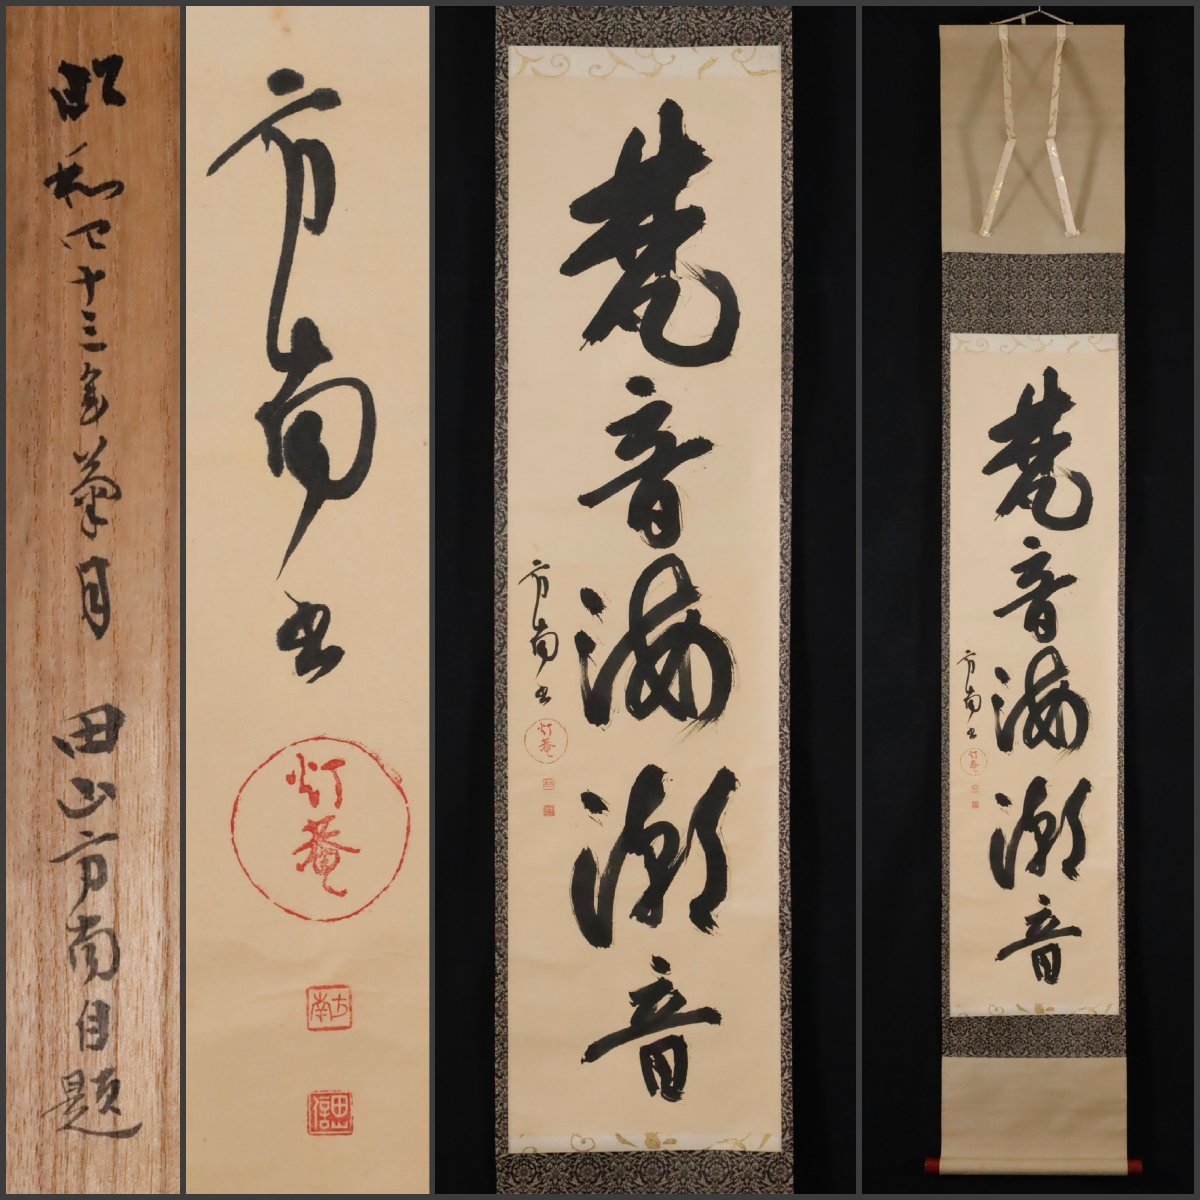 昭和四十三年菊月 田山方南自題
方南書
灯菴
方南
田山信
梵音海潮音
方南書
灯菴
梵音海潮音
方南書
灯菴